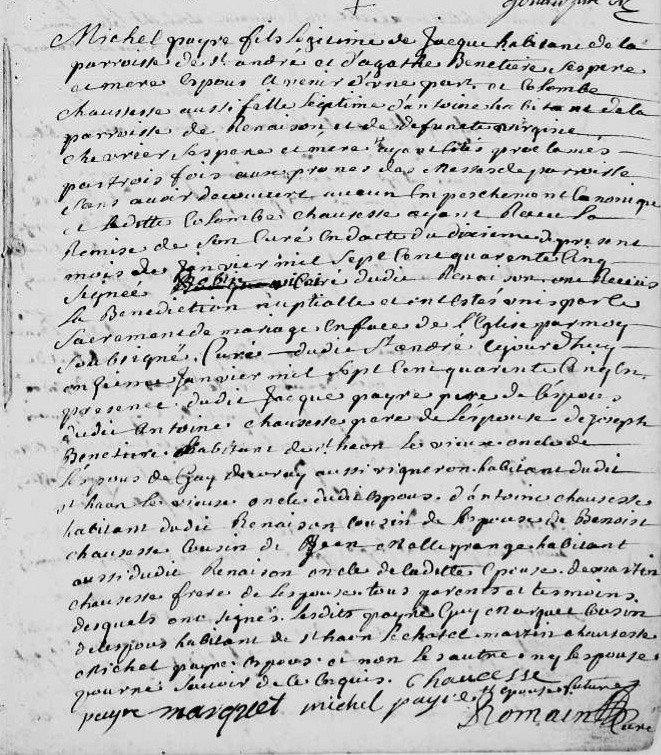 Michel payre fils légitime de Jacque habitant de la
parroisse de st andré et d'agathe Benetiere ses pere
et mere Espous avenir d'une part, et Colombe
chausesse aussi fille légitime d'antoine habitant de la
parroisse de Renaison et de defunte
chevrier, ses pere et mere, ayant estés proclamés
par trois fois aux prones des Messes de parroisse
sans avoir decouvert aucun Enpeschement Canonique
et laditte Colombe chausesse ayant Raeu la
Remise de son Curé en datte du dixieme du present
mois de Janvier mil sept Cent quarente Cinq
signée Curé dudit Renaison ont Receus
la Benediction nuptialle et ont Estés unis par le
sacrement de mariage en face de l'Eglise par moy
soubsigné Curé dudit St andré ce jourd'huy
onzieme Janvier mil sept Cent quarente Cinq En
presence dudit Jacque payre pere de l'espous
dudit antoine chausesse pere de l'espouse de joseph
Benetiere habitant de st haon le vieux oncle de
l'espous de Guy aussi vigneron habitant dudit
st haon le vieux oncle dudit Espous. d'antoine chausesse
habitant dudit Renaison Cousin de l'espouse de Benoist
chausesse Cousin de Jean habitant
aussi dudit Renaison oncle de laditte Epouse. de martin
chausesse frere de l'espouse tous parents et temoins.
desquels ont signés lesdits payre Guy marquet Cousin
de l'espous habitant de st haon le chatel. martin chausesse
Michel payre Espous. et non les autres ny l'espouse
pour ne savoir de ce Enquis. chaucesse
payre marquet michel payre Epouse future
Romain Curé